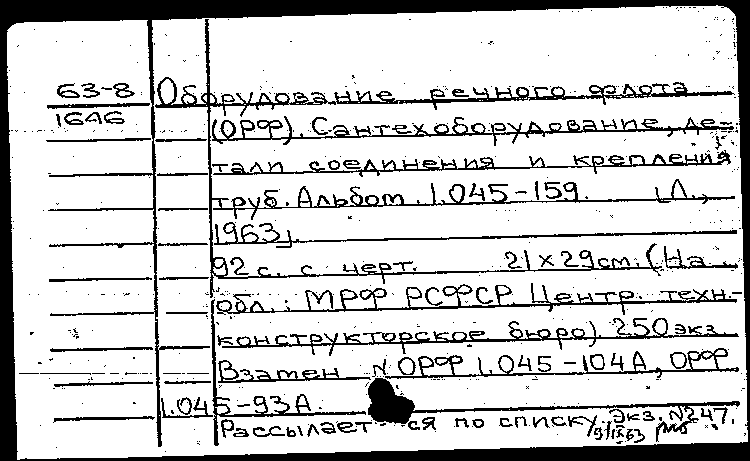 63-8 Оборудование речного флота
1646 (ОРФ). Сантехоборудование, де-
тали соединения и крепления
труб. Альбом. 1.045-159. [Л.,
1963].
92 с. с черт. 21×29см. (На
обл.: МРФ РСФСР. Центр. техн.-
конструкторское бюро). 250 экз.
Взамен № ОРФ 1.045-104А, ОРФ
1.045-93А.
Рассылается по списку. Экз. №247.
9/IX63